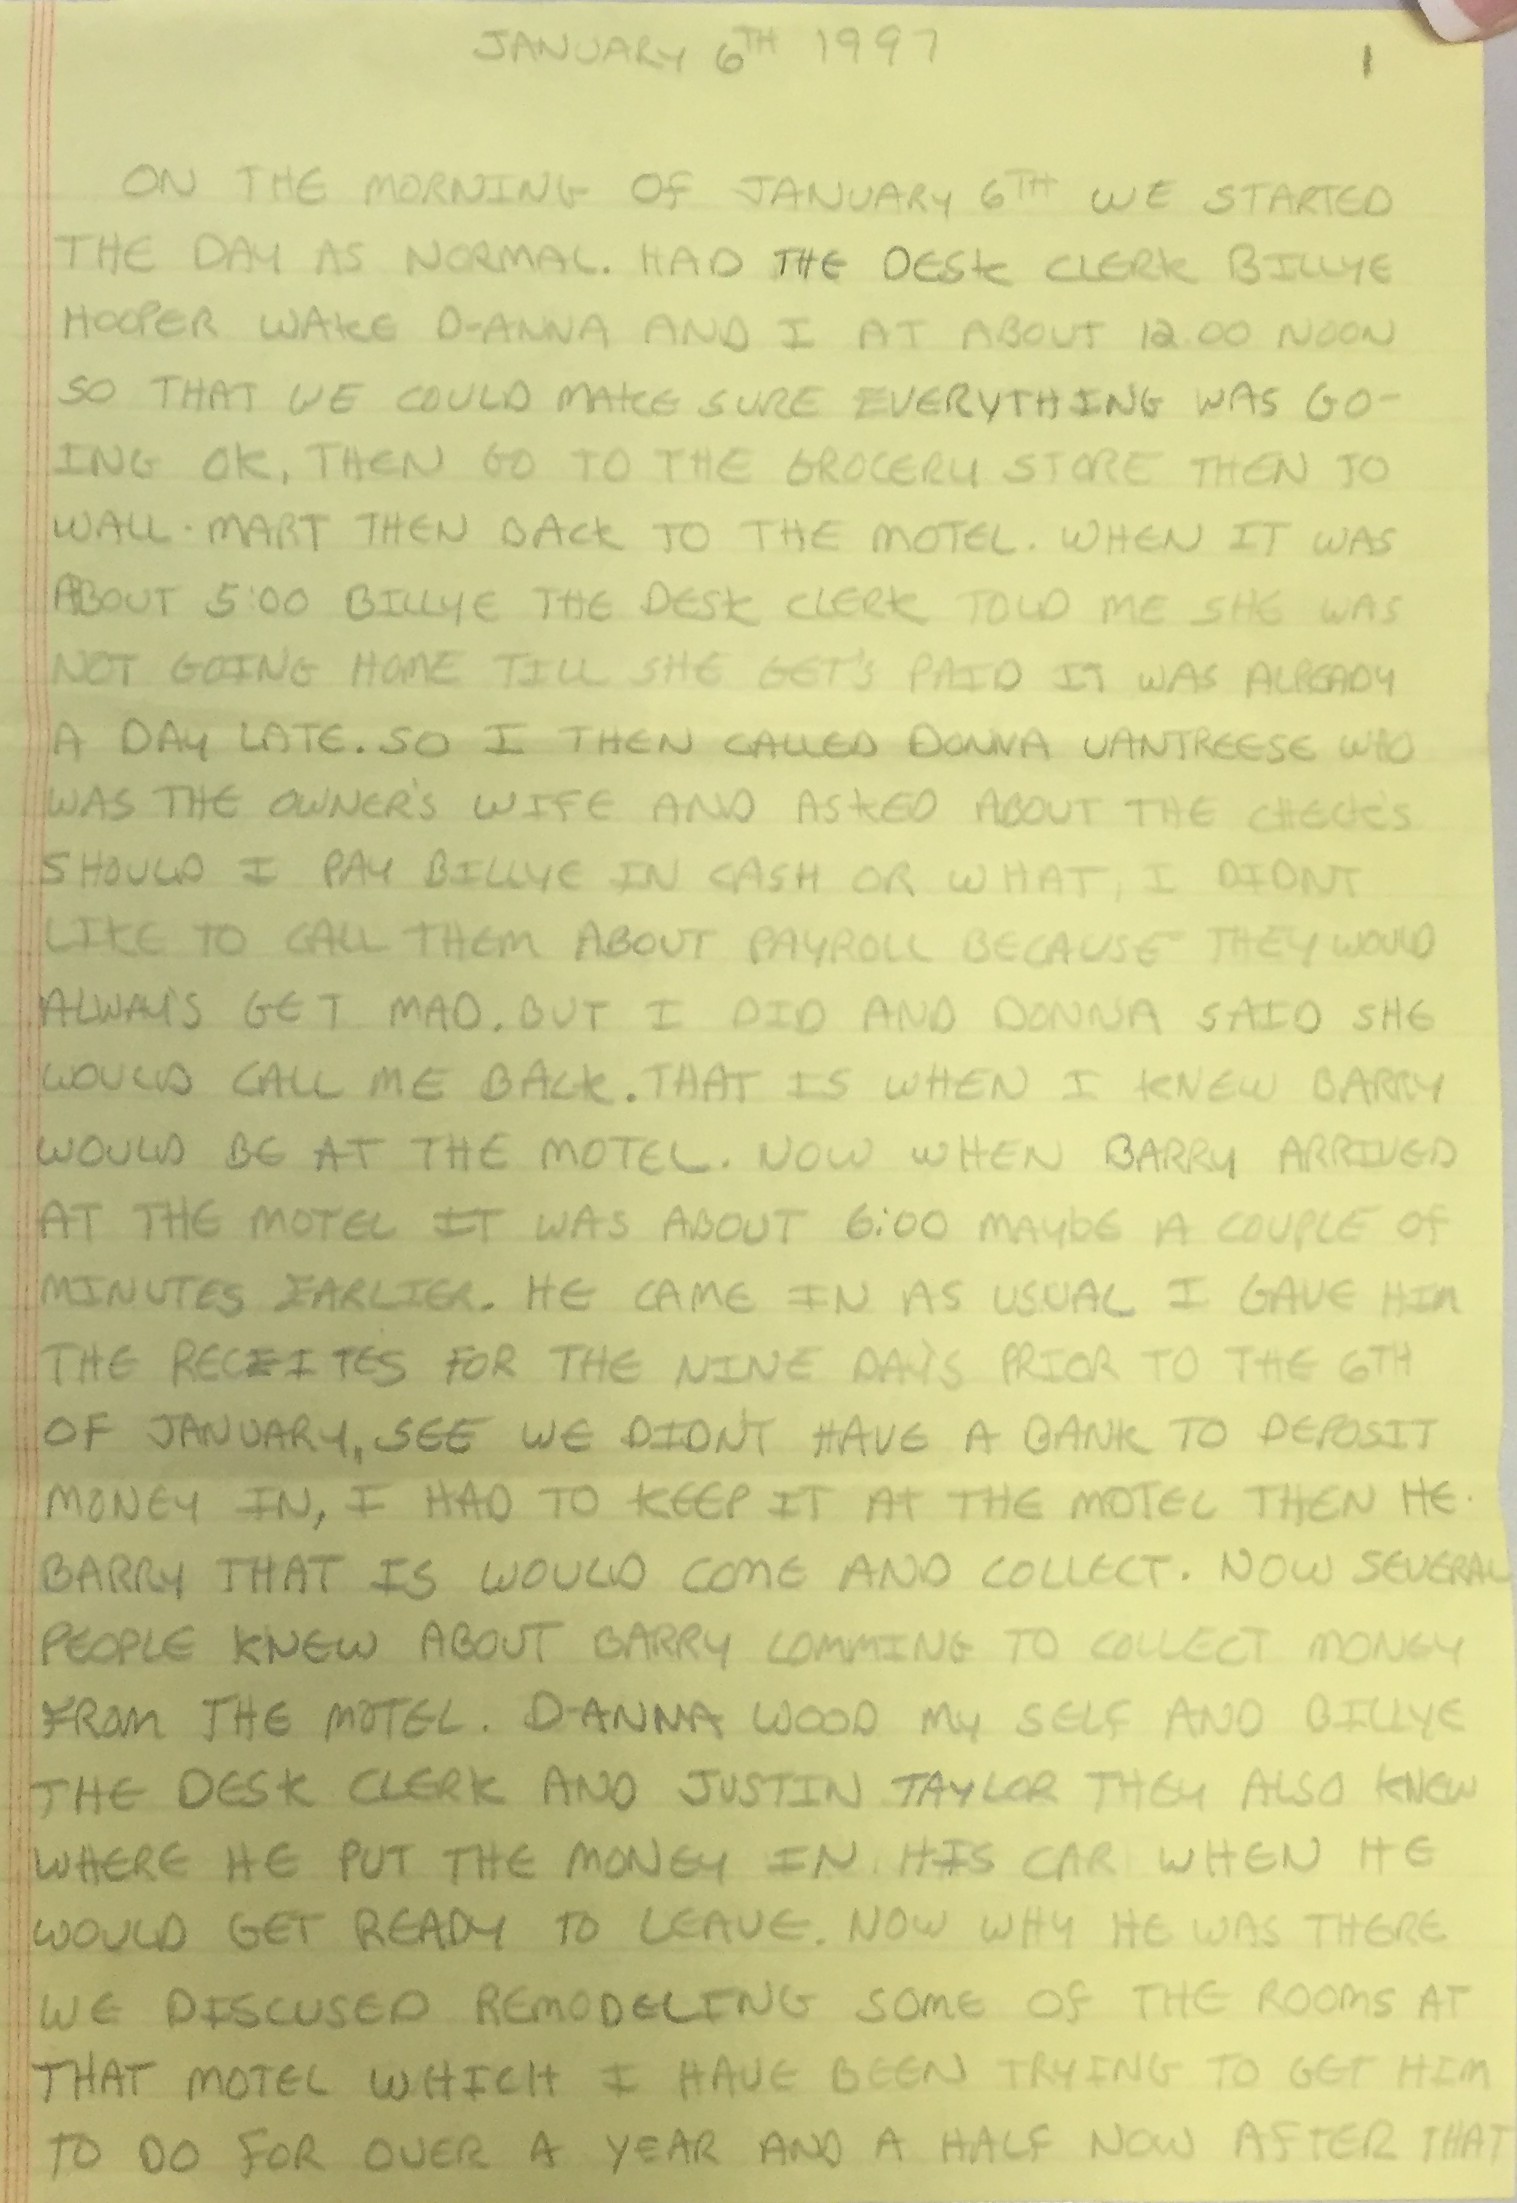 JANUARY 6TH 1997
1
ON THE MORNING OF JANUARY 6TH WE STARTED
THE DAY AS NORMAL. HAD THE DESK CLERK BILLYE
HOOPER WAKE D-ANNA AND I AT ABOUT 12.00 NOON
SO THAT WE COULD MAKE SURE EVERYTHING WAS GO-
ING OK, THEN GO TO THE GROCERY STORE THEN TO
WALL-MART THEN BACK TO THE MOTEL. WHEN IT WAS
ABOUT 5:00 BILLYE THE DESK CLERK TOLD ME SHE WAS
NOT GOING HOME TILL SHE GET'S PAID IT WAS ALREADY
A DAY LATE. SO I THEN CALLED DONNA VANTREESE WHO
WAS THE OWNER'S WIFE AND ASKED ABOUT THE CHECK'S
SHOULD I PAY BILLYE IN CASH OR WHAT, I DIDNT
LIKE TO CALL THEM ABOUT PAYROLL BECAUSE THEY WOULD
ALWAY'S GET MAD. BUT I DID AND DONNA SAID SHE
WOULD CALL ME BACK. THAT IS WHEN I KNEW BARRY
WOULD BE AT THE MOTEL. NOW WHEN BARRY ARRIVED
AT THE MOTEL IT WAS ABOUT 6:00 MAYBE A COUPLE OF
MINUTES EARLIER. HE CAME IN AS USUAL I GAVE HIM
THE RECEITES FOR THE NINE DAY'S PRIOR TO THE 6TH
OF JANUARY, SEE WE DIDN'T HAVE A BANK TO DEPOSIT
MONEY IN, I HAD TO KEEP IT AT THE MOTEL THEN HE.
BARRY THAT IS WOULD COME AND COLLECT. NOW SEVERAL
PEOPLE KNEW ABOUT BARRY COMMING TO COLLECT MONEY
FROM THE MOTEL. D-ANNA WOOD MY SELF AND BILLYE
THE DESK CLERK AND JUSTIN TAYLOR THEY ALSO KNEW
WHERE HE PUT THE MONEY IN HIS CAR WHEN HE
WOULD GET READY TO LEAVE. NOW WHY HE WAS THERE
WE DISCUSED REMODELING SOME OF THE ROOMS AT
THAT MOTEL WHICH I HAVE BEEN TRYING TO GET HIM
TO DO FOR OVER A YEAR AND A HALF NOW AFTER THAT